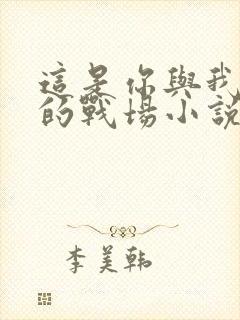 這是你與我
的戰場小說
李美韩